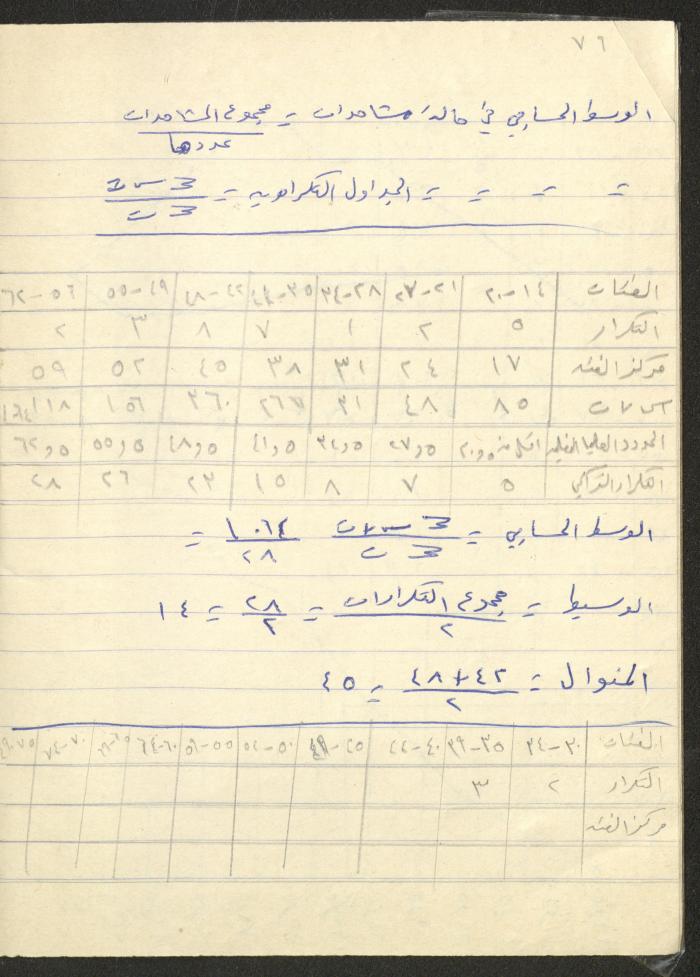 ٧٦
الوسط الحسابي في حالة مشاهدات = مجموع المشاهدات / عددها
= = = = الجداول التكرارية = ∑ س ت / ∑ ت
الفئات ١٤-٢٠ ٢١-٢٧ ٢٨-٣٤ ٣٥-٤١ ٤٢-٤٨ ٤٩-٥٥ ٥٦-٦٢
التكرار ٥ ٢ ١ ٧ ٨ ٣ ٢
مركز الفئه ١٧ ٢٤ ٣١ ٣٨ ٤٥ ٥٢ ٥٩
س × ت ٨٥ ٤٨ ٣١ ٢٦٦ ٣٦٠ ١٥٦ ١١٨
الحدود العليا الفعليه اقل من ٢٠,٥ ٢٧,٥ ٣٤,٥ ٤١,٥ ٤٨,٥ ٥٥,٥ ٦٢,٥
التكرار التراكمي ٥ ٧ ٨ ١٥ ٢٣ ٢٦ ٢٨
الوسط الحسابي = ∑ س × ت / ∑ ت = ١٠٦٤ / ٢٨ =
الوسيط = مجموع التكرارات / ٢ = ٢٨ / ٢ = ١٤
المنوال = ٤٢ + ٤٨ / ٢ = ٤٥
الفئات ٣٠-٣٤ ٣٥-٣٩ ٤٠-٤٤ ٤٥-٤٩ ٥٠-٥٤ ٥٥-٥٩ ٦٠-٦٤ ٦٥-٦٩ ٧٠-٧٤
التكرار ٢ ٣
مركز الفئه